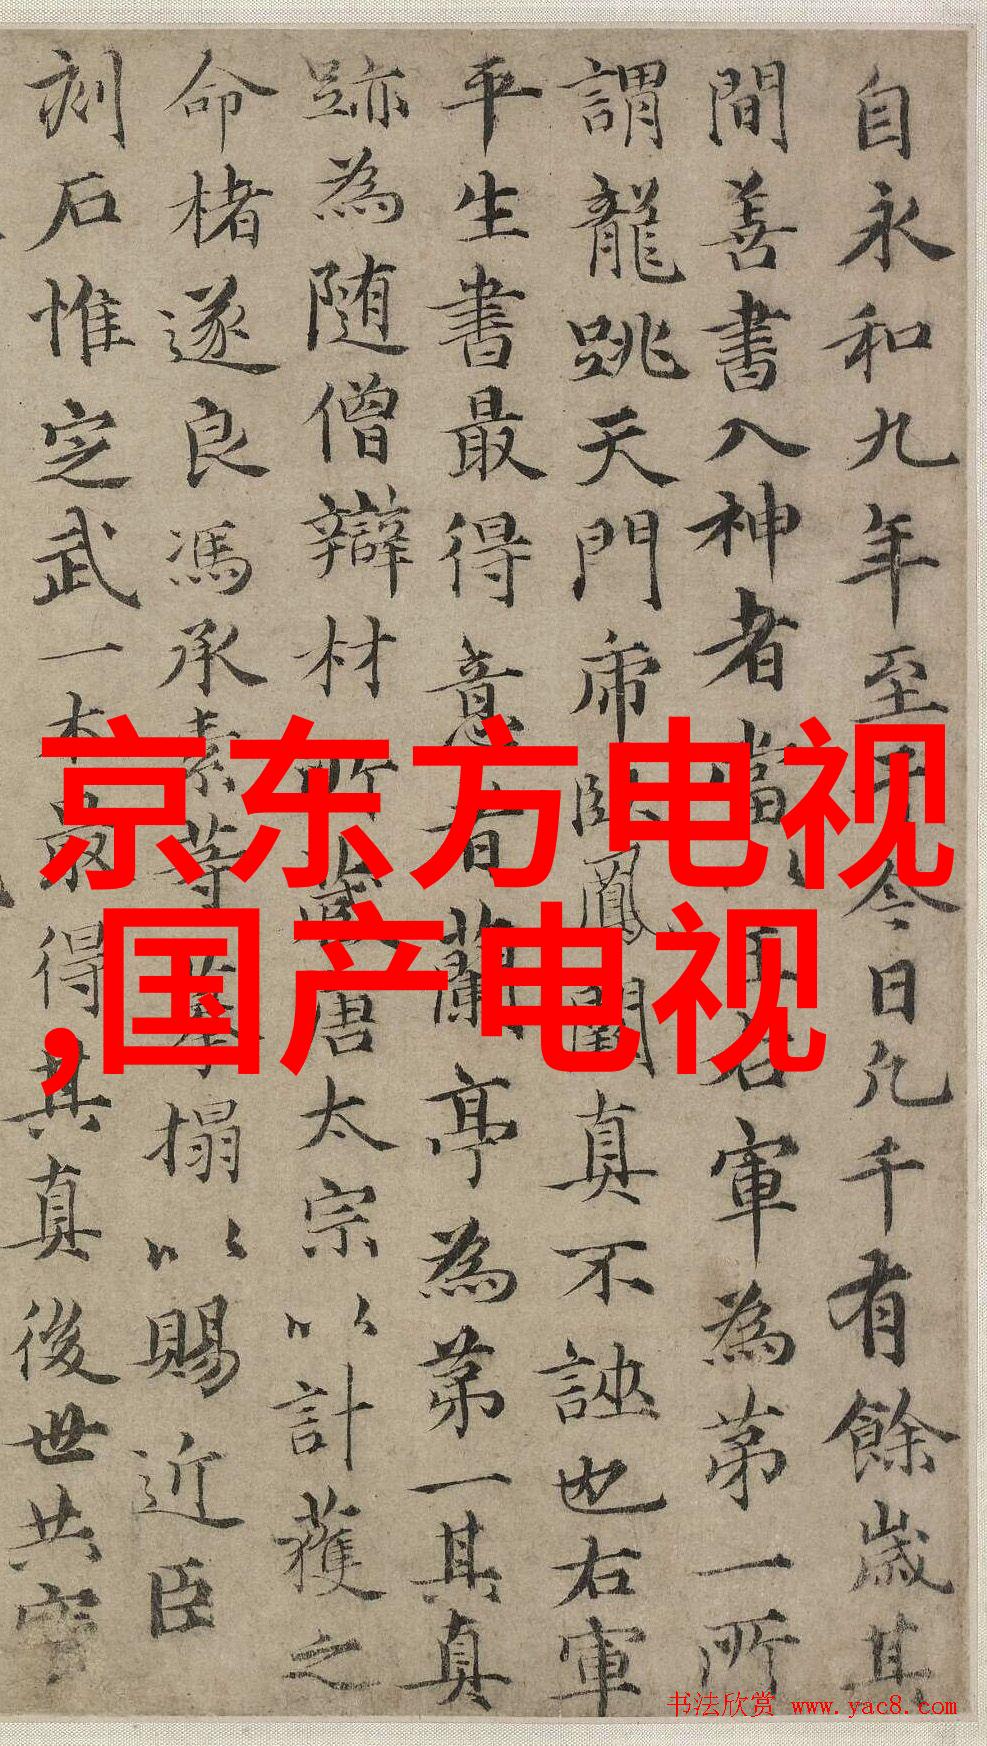 自永和九年至于今日凡千有餘歲其
間善書入神者當以王右軍為第一所
謂龍跳天門虎臥鳳閣真不誣也右軍
平生書最得意者蘭亭為第一其真
跡為隨僧辯材所藏唐太宗以計獲之
命楮遂良馮承素等摹搨以賜近臣
刻石惟定武一本最得其真後世共寳
京东方电视
,国产电视
书法欣赏 www.yac8.com